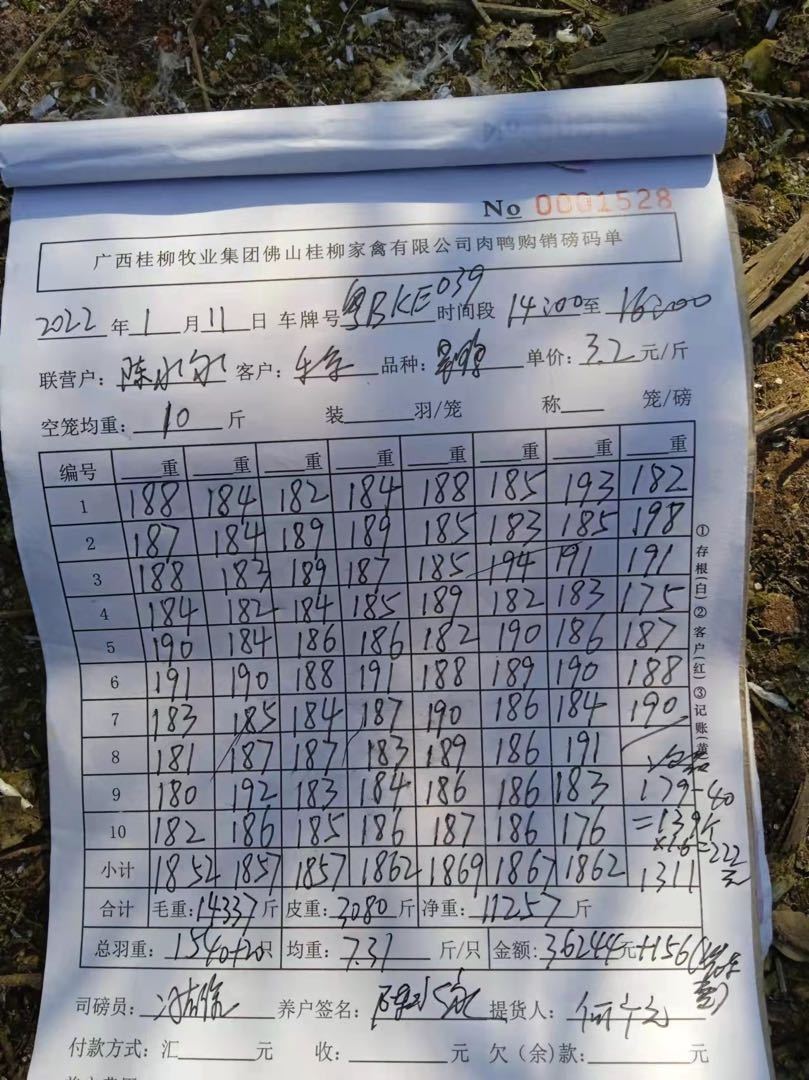 No 0001528
广西桂柳牧业集团佛山桂柳家禽有限公司肉鸭购销磅码单
2022 年 1 月 11 日 车牌号 粤BKE039 时间段 14:00 至 16:00
联营户: 陈水永 客户: 品种: 单价: 3.2 元/斤
空笼均重: 10 斤 装 羽/笼 称 笼/磅
编号 重 重 重 重 重 重 重 重
1 188 184 182 184 188 185 193 182
2 187 184 189 189 185 183 185 198
3 188 183 189 187 185 194 191 191
4 184 182 184 185 189 182 183 175
5 190 184 186 186 182 190 186 187
6 191 190 188 191 188 189 190 188
7 183 185 184 187 190 186 184 190
8 181 187 187 183 189 186 191
9 180 192 183 184 186 186 183 179-40
10 182 186 185 186 187 186 176 =139斤
×1.6=222元
小计 1852 1857 1857 1862 1869 1867 1862 1311
合计 毛重: 14337 斤 皮重: 3080 斤 净重: 11257 斤
总羽重: 1540+20 只 均重: 7.31 斤/只 金额: 36244 元+156
司磅员: 养户签名: 提货人:
付款方式: 汇 元 收: 元 欠(余)款: 元
①存根(白)②客户(红)③记账(黄